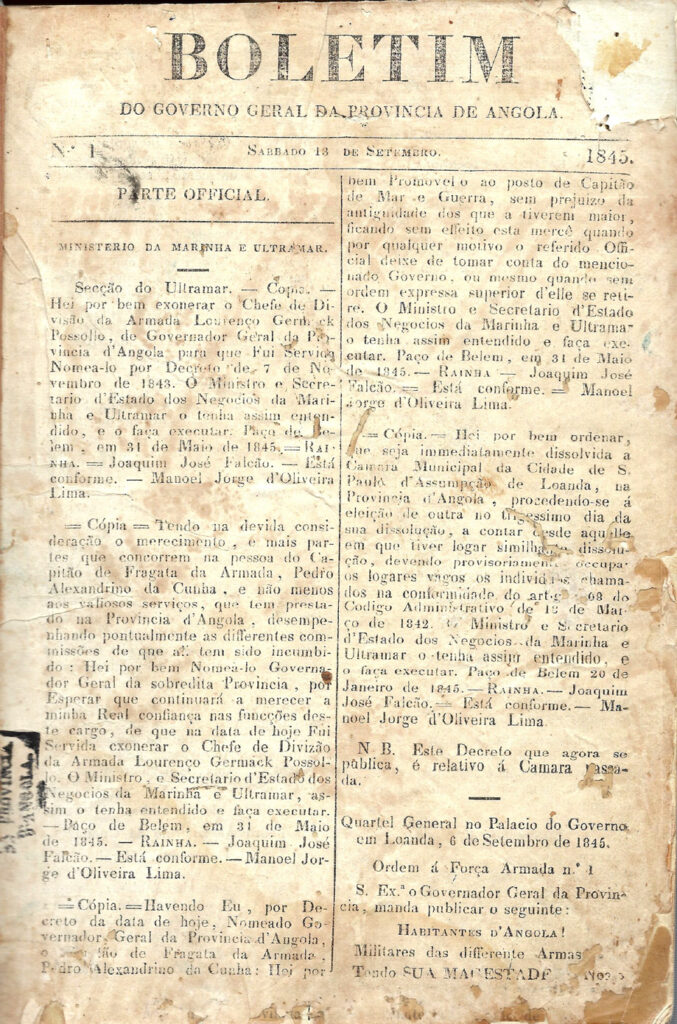 BOLETIM
DO GOVERNO GERAL DA PROVINCIA DE ANGOLA.
N.º 1
SABBADO 13 DE SETEMBRO.
1845.
PARTE OFFICIAL.
MINISTERIO DA MARINHA E ULTRAMAR.
Secção do Ultramar. — Copia. —
Hei por bem exonerar o Chefe de Di-
visão da Armada Lourenço Germack
Possollo, de Governador Geral da Pro-
vincia d'Angola para que Fui Servida
Nomea-lo por Decreto de 7 de No-
vembro de 1843. O Ministro e Secre-
tario d'Estado dos Negocios da Mari-
nha e Ultramar o tenha assim enten-
dido, e o faça executar. Paço de Be-
lem, em 31 de Maio de 1845. = RAI-
NHA. = Joaquim José Falcão. — Está
conforme. — Manoel Jorge d'Oliveira
Lima.
= Cópia = Tendo na devida consi-
deração o merecimento, e mais par-
tes que concorrem na pessoa do Ca-
pitão de Fragata da Armada, Pedro
Alexandrino da Cunha, e não menos
aos valiosos serviços, que tem presta-
do na Provincia d'Angola, desempe-
nhando pontualmente as differentes com-
missões de que alí tem sido incumbi-
do: Hei por bem Nomea-lo Governa-
dor Geral da sobredita Provincia, por
Esperar que continuará a merecer a
minha Real confiança nas funcções des-
te cargo, de que na data de hoje Fui
Servida exonerar o Chefe de Divizão
da Armada Lourenço Germack Possol-
lo. O Ministro, e Secretario d'Estado dos
Negocios da Marinha e Ultramar, as-
sim o tenha entendido e faça executar.
— Paço de Belem, em 31 de Maio
de 1845. — RAINHA. — Joaquim José
Falcão. — Está conforme. — Manoel Jor-
ge d'Oliveira Lima.
= Cópia. = Havendo Eu, por De-
creto da data de hoje, Nomeado Go-
vernador Geral da Provincia d'Angola,
o Capitão de Fragata da Armada,
Pedro Alexandrino da Cunha: Hei por
bem Promovel o ao posto de Capitão
de Mar e Guerra, sem prejuizo da
antiguidade dos que a tiverem maior,
ficando sem effeito esta mercê quando
por qualquer motivo o referido Offi-
cial deixe de tomar conta do mencio-
nado Governo, ou mesmo quando sem
ordem expressa superior d'elle se reti-
re. O Ministro e Secretario d'Estado
dos Negocios da Marinha e Ultramar
o tenha assim entendido e faça exe-
cutar. Paço de Belem, em 31 de Maio
de 1845. — RAINHA — Joaquim José
Falcão. = Está conforme. = Manoel
Jorge d'Oliveira Lima.
= Cópia. = Hei por bem ordenar,
que seja immediatamente dissolvida a
Camara Municipal da Cidade de S.
Paulo d'Assumpção de Loanda, na
Provincia d'Angola, procedendo-se á
eleição de outra no trigessimo dia da
sua dissolução, a contar desde aquelle
em que tiver logar similhante dissolu-
ção, devendo provisoriamente occupar
os logares vagos os individuos chama-
dos na conformidade do art.º 68 do
Codigo Administrativo de 18 de Mar-
ço de 1842. O Ministro e Secretario
d'Estado dos Negocios da Marinha e
Ultramar o tenha assim entendido, e
o faça executar. Paço de Belem 20 de
Janeiro de 1845. — RAINHA. — Joaquim
José Falcão. = Está conforme. — Ma-
noel Jorge d'Oliveira Lima.
N B. Este Decreto que agora se
pública, é relativo á Camara passa-
da.
Quartel General no Palacio do Governo
em Loanda, 6 de Setembro de 1845.
Ordem á Força Armada n.º 1
S. Ex.ª o Governador Geral da Provin-
cia, manda publicar o seguinte:
HABITANTES D'ANGOLA!
Militares das differente Armas
Tendo SUA MAGESTADE
PROVINCIA
D'ANGOLA.